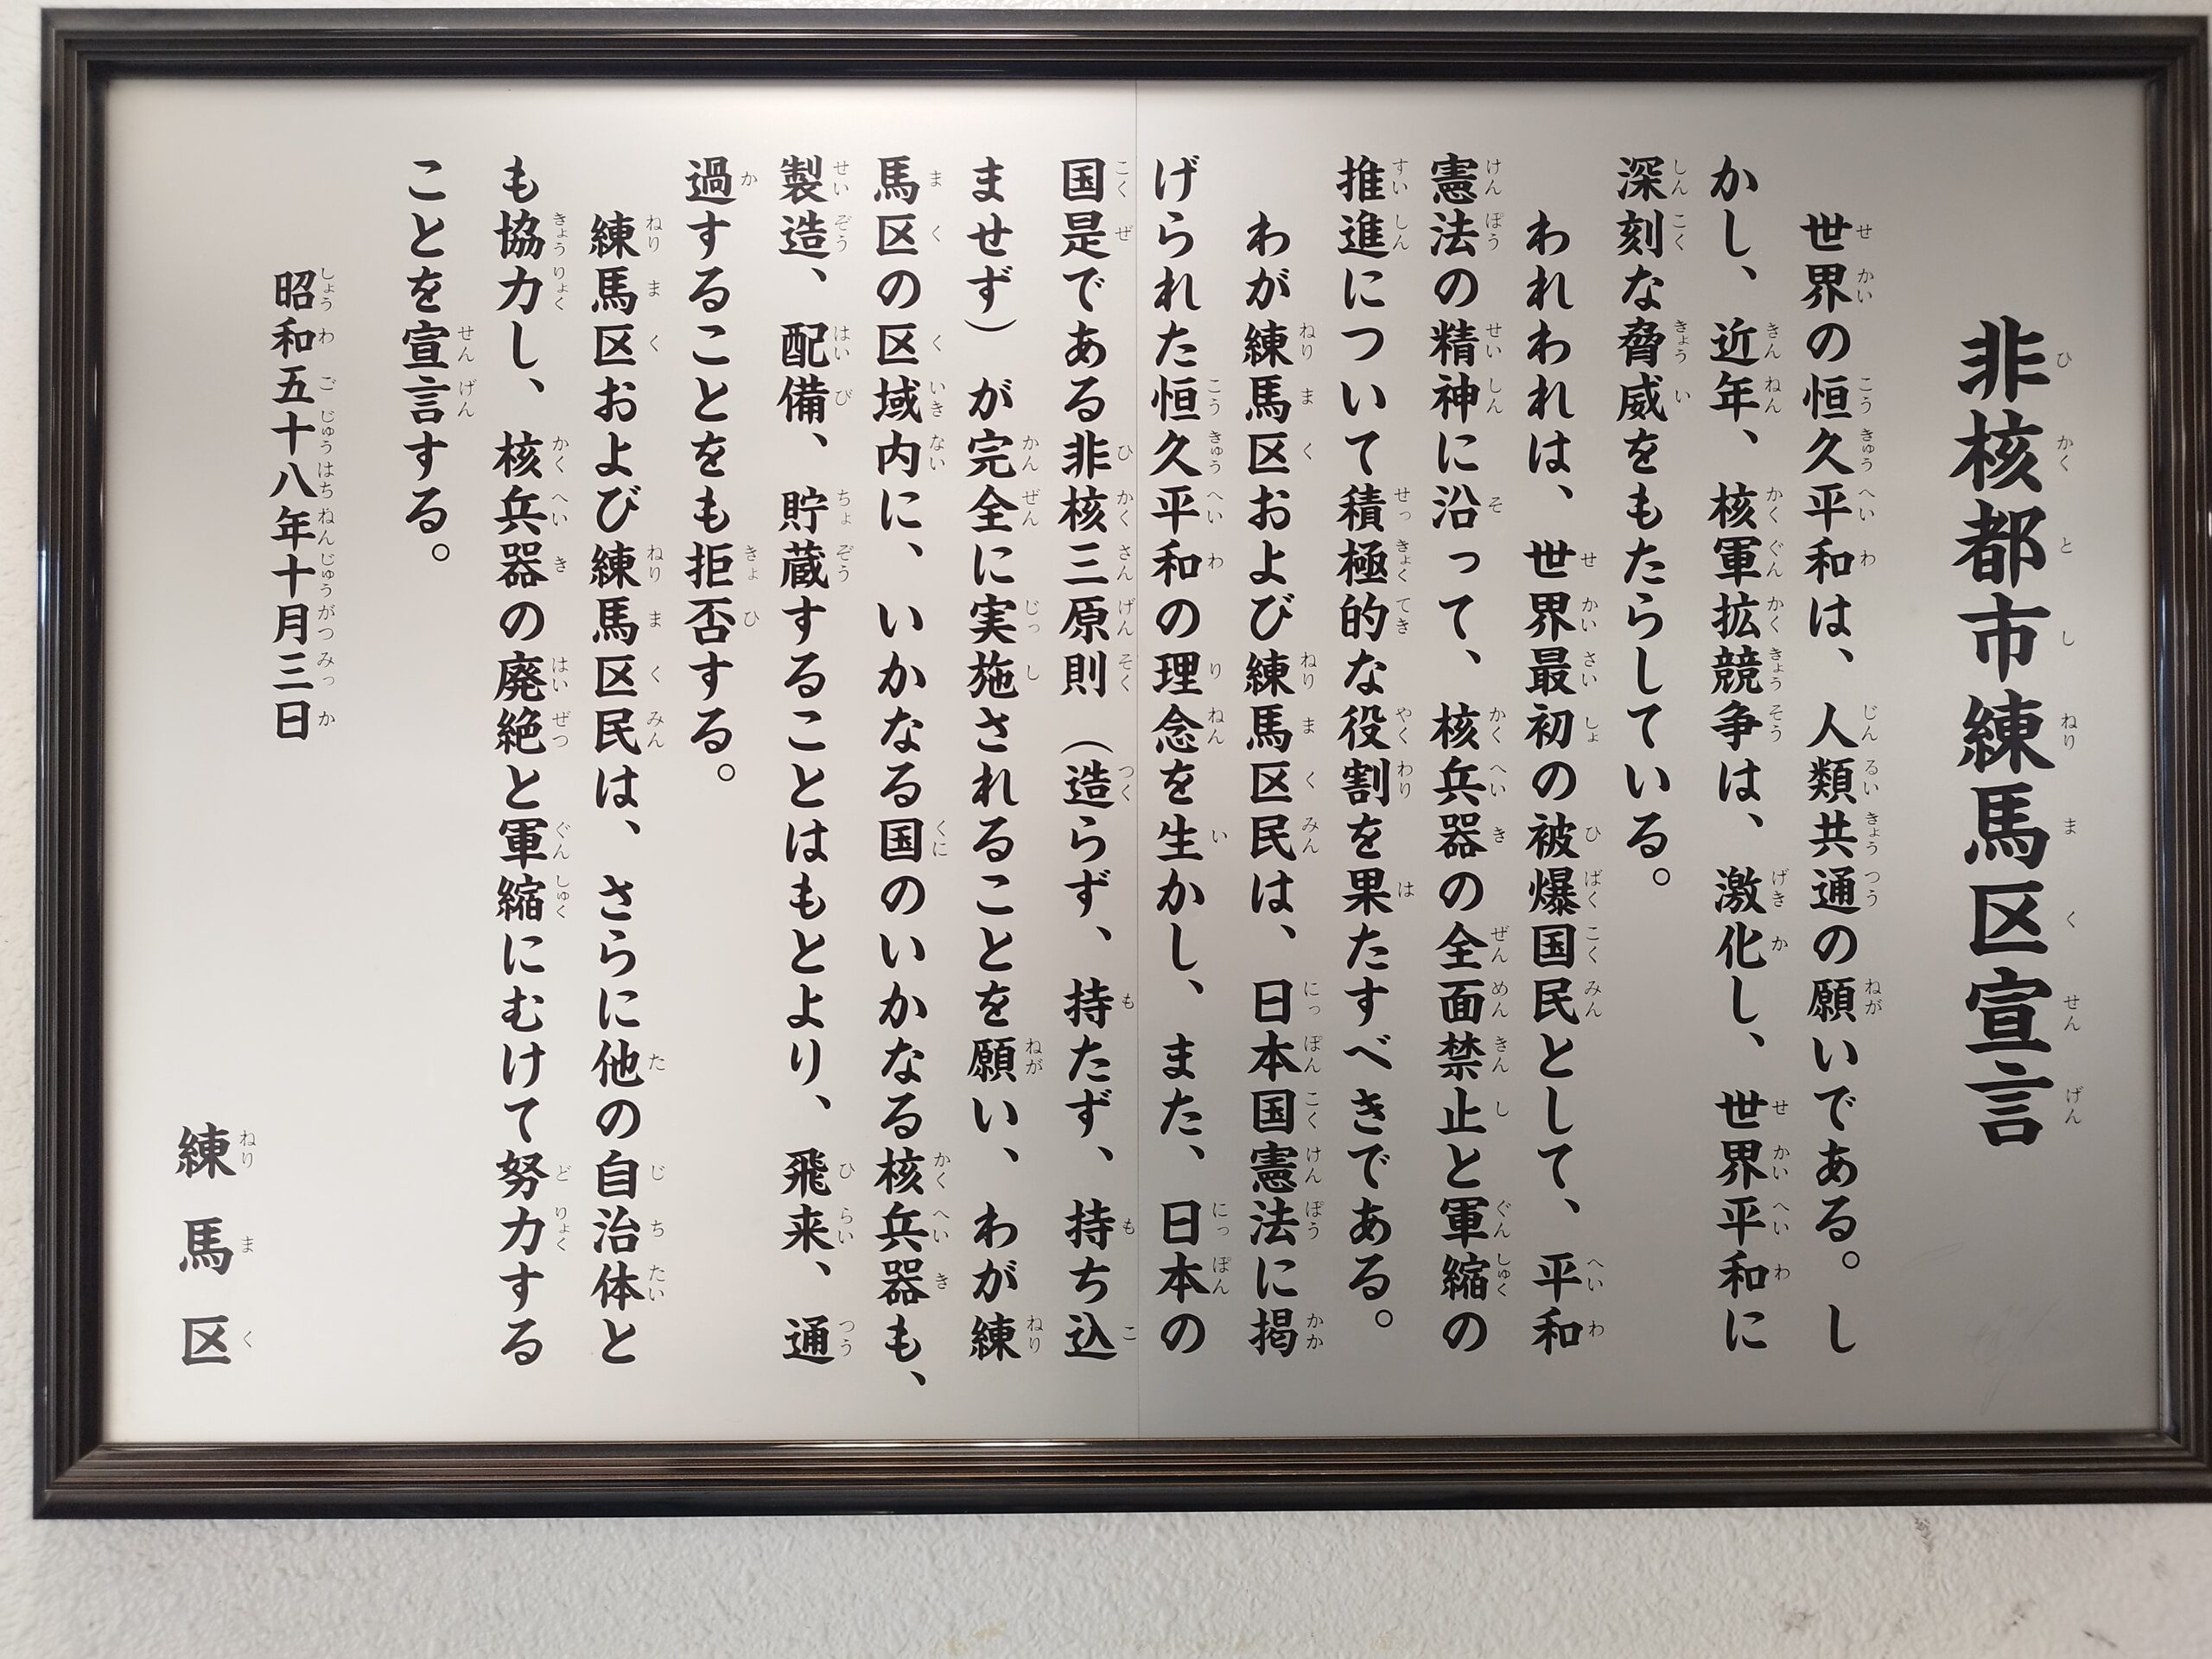 非核都市練馬区宣言
世界の恒久平和は、人類共通の願いである。し
かし、近年、核軍拡競争は、激化し、世界平和に
深刻な脅威をもたらしている。
われわれは、世界最初の被爆国民として、平和
憲法の精神に沿って、核兵器の全面禁止と軍縮の
推進について積極的な役割を果たすべきである。
わが練馬区および練馬区民は、日本国憲法に掲
げられた恒久平和の理念を生かし、また、日本の
国是である非核三原則（造らず、持たず、持ち込
ませず）が完全に実施されることを願い、わが練
馬区の区域内に、いかなる国のいかなる核兵器も、
製造、配備、貯蔵することはもとより、飛来、通
過することをも拒否する。
練馬区および練馬区民は、さらに他の自治体と
も協力し、核兵器の廃絶と軍縮にむけて努力する
ことを宣言する。
昭和五十八年十月三日
練馬区